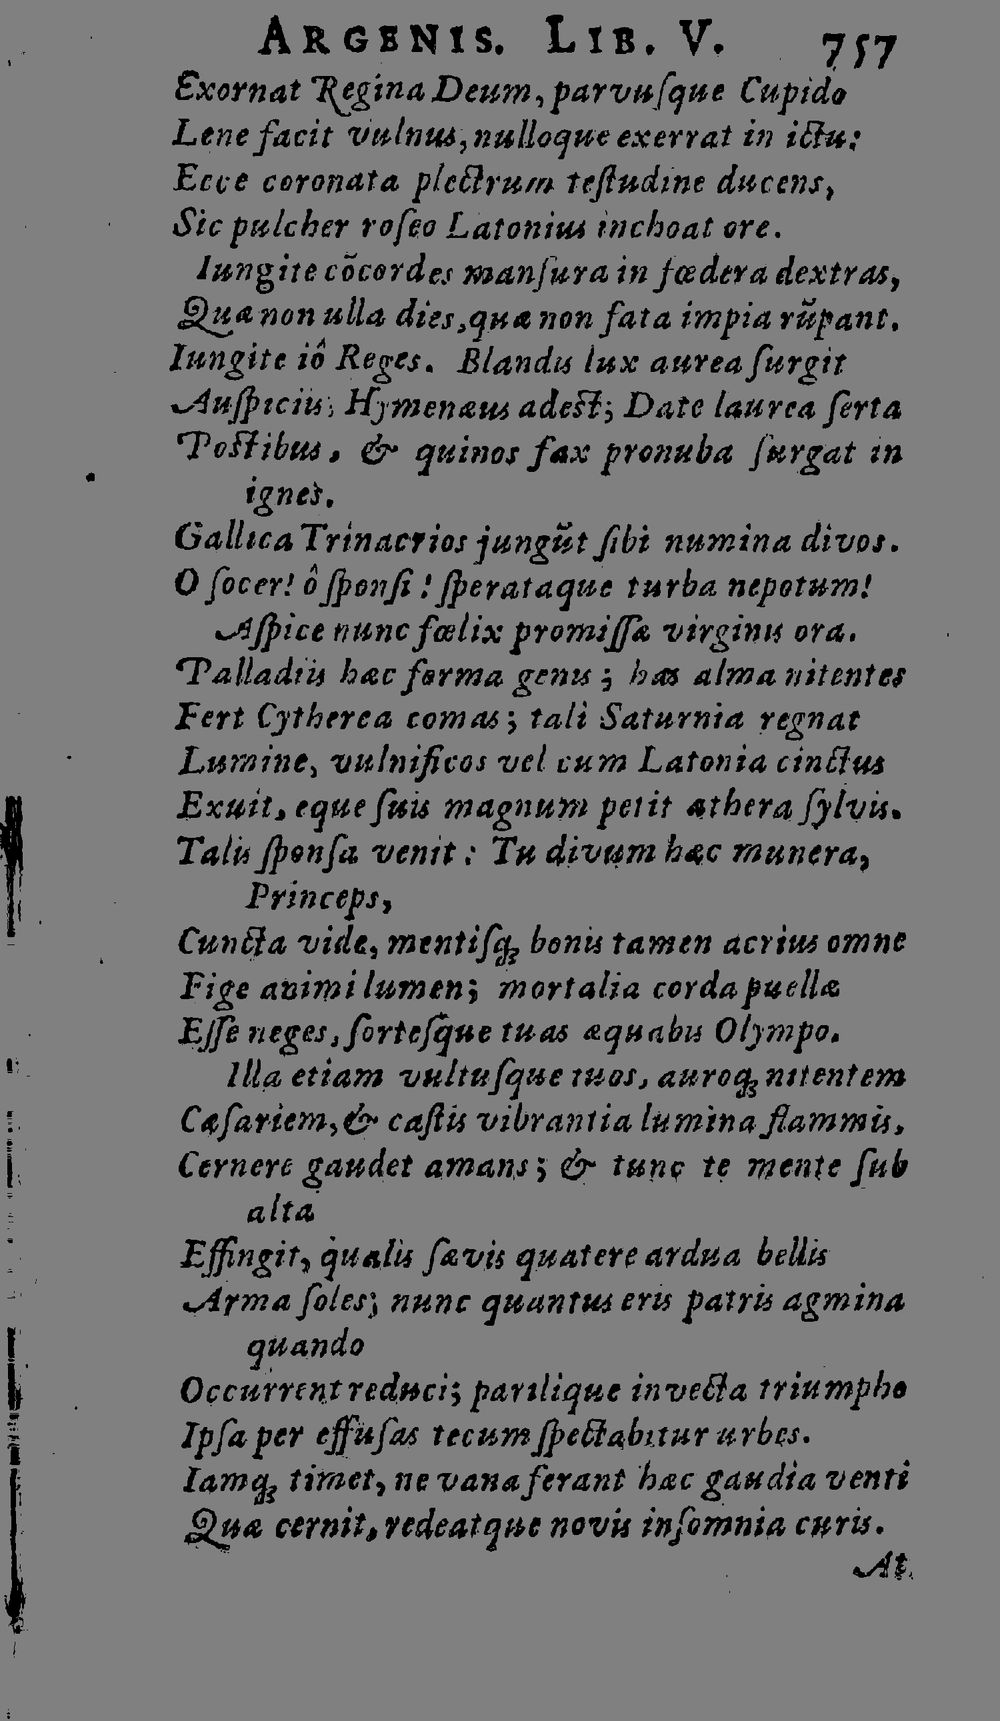 ARGENIS. LIB. V. 757
Exornat Regina Deum, parvuſque Cupido
Lene facit vulnus, nulloque exerrat in ictu:
Ecce coronata plectrum teſtudine ducens,
Sic pulcher roſeo Latonius inchoat ore.
Iungite cōcordes manſura in fœdera dextras,
Quæ non ulla dies, quæ non fata impia rūpant.
Iungite iô Reges. Blandis lux aurea ſurgit
Auſpiciis; Hymenæus adest; Date laurea ſerta
Postibus, & quinos fax pronuba ſurgat in
ignes.
Gallica Trinacrios jungūt ſibi numina divos.
O ſocer! ô ſponſi! ſperataque turba nepotum!
Aſpice nunc fœlix promiſſæ virginis ora.
Palladiis hæc forma genis; has alma nitentes
Fert Cytherea comas; tali Saturnia regnat
Lumine, vulnificos vel cum Latonia cinctus
Exuit, eque ſuis magnum petit æthera ſylvis.
Talis ſponſa venit: Tu divum hæc munera,
Princeps,
Cuncta vide, mentiſq; bonis tamen acrius omne
Fige animi lumen; mortalia corda puellæ
Eſſe neges, ſorteſque tuas æquabis Olympo.
Illa etiam vultuſque tuos, auroq; nitentem
Cæſariem, & caſtis vibrantia lumina flammis,
Cernere gaudet amans; & tunc te mente ſub
alta
Effingit, qualis ſævis quatere ardua bellis
Arma ſoles; nunc quantus eris patris agmina
quando
Occurrent reduci; parilique invecta triumpho
Ipſa per effuſas tecum ſpectabitur urbes.
Iamq; timet, ne vana ferant hæc gaudia venti
Quæ cernit, redeatque novis inſomnia curis.
At